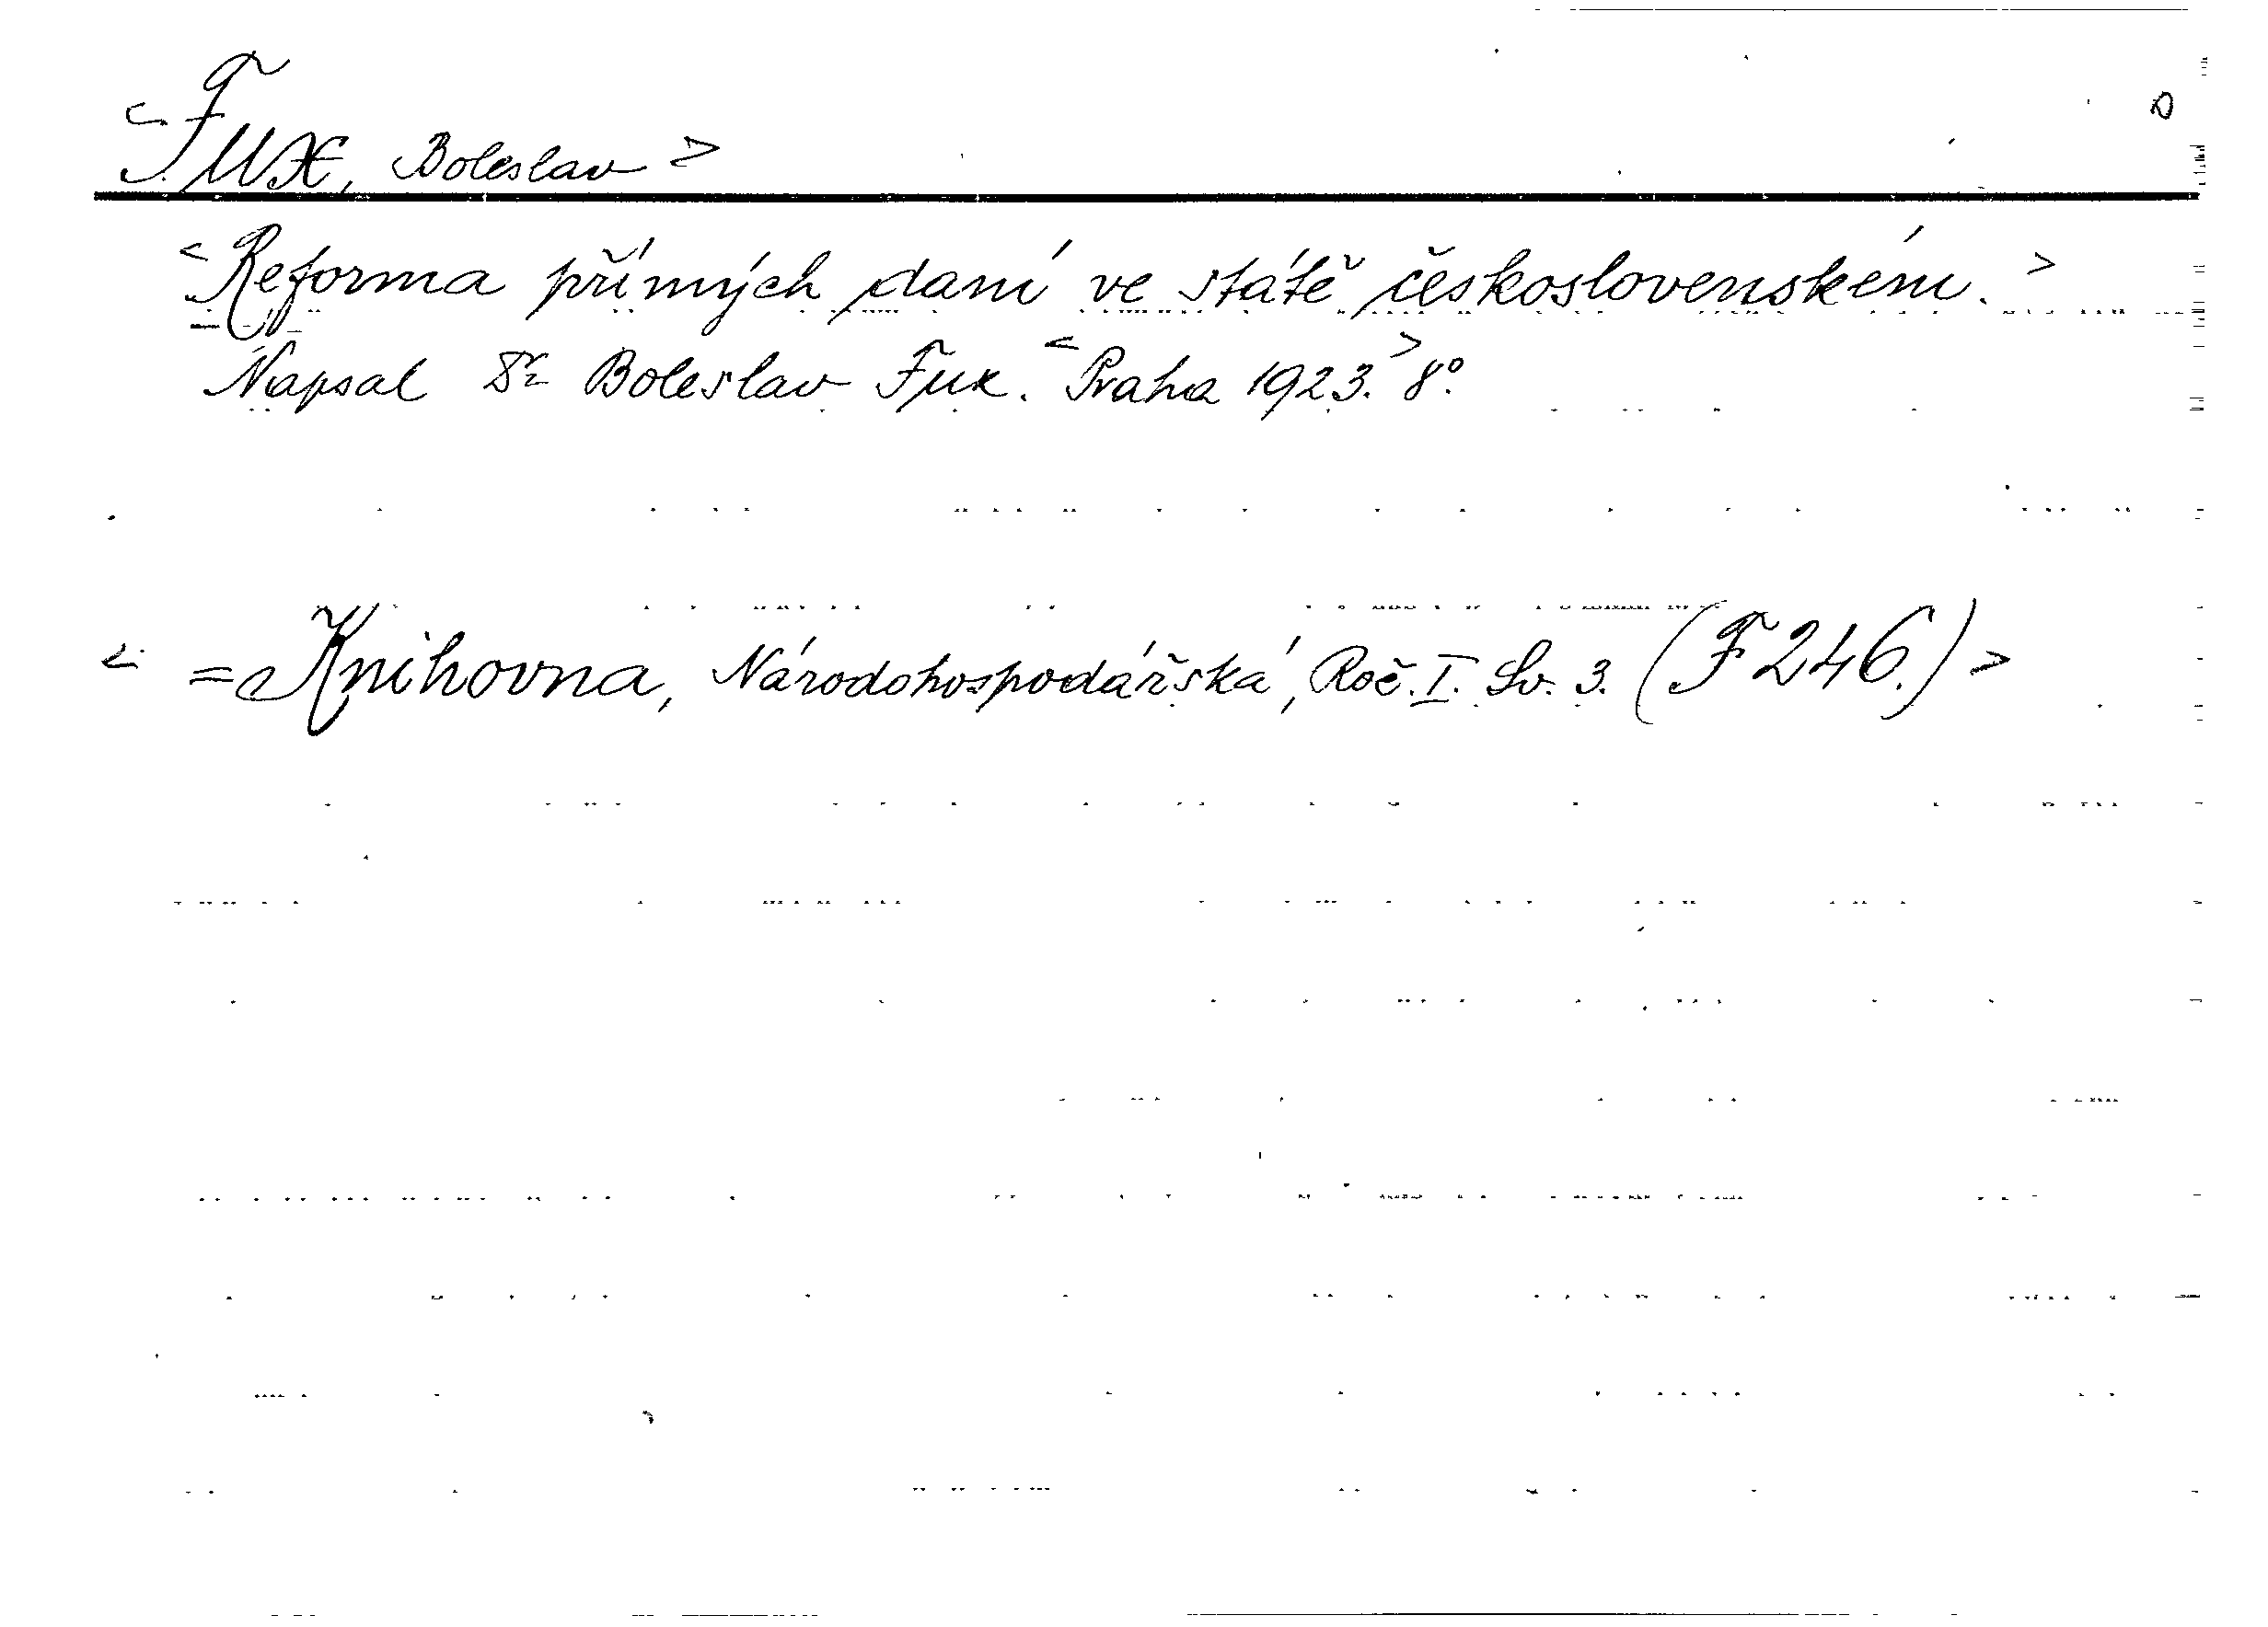 <Fux, Boleslav>
<Reforma přímých daní ve státě československém.>
Napsal Dr Boleslav Fux. <Praha 1923.> 8°.
<=Knihovna, Národohospodářská, Roč. I. Sv. 3. (F 246.)>